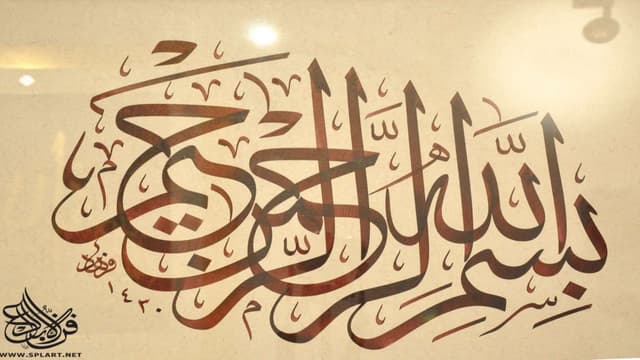 بسم الله الرحمن الرحيم
١٤٢٠
WWW.SPLART.NET